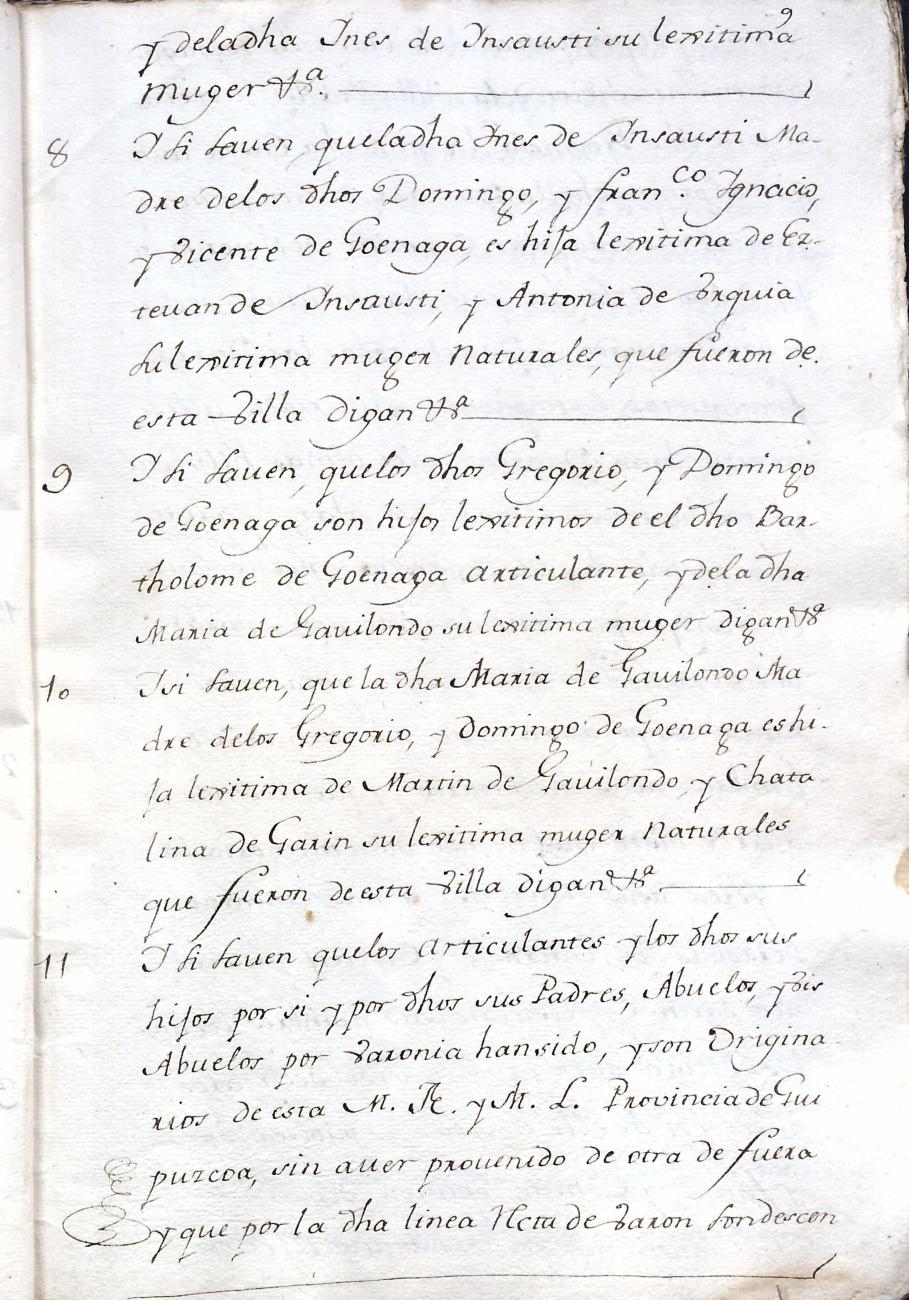 9
y deladha Ines de Insausti su lexitima
muger &ª.
8 I si saven, queladha Ines de Insausti Ma-
dre delos dhos Domingo, y fran.co Ignacio,
y Vicente de Goenaga, es hija lexitima de Es-
tevande Insausti, y Antonia de Vrquia
su lexitima muger Naturales, que fueron de
esta Villa digan &ª
9 I si saven, quelos dhos Gregorio, y Domingo
de Goenaga son hijos lexitimos de el dho Bar-
tholome de Goenaga articulante, y dela dha
Maria de Gavilondo su lexitima muger digan &ª
10 I si saven, que la dha Maria de Gavilondo Ma
dre delos Gregorio, y Domingo de Goenaga es hi-
ja lexitima de Martin de Gavilondo y Chata
lina de Garin su lexitima muger Naturales
que fueron de esta Villa digan &ª
11 I si saven quelos articulantes y los dhos sus
hijos por si y por dhos sus Padres, Abuelos, y Vis
Abuelos por Varonia han sido, y son Origina
rios de esta M. N. y M. L. Provincia de Gui
puzcoa, sin aver provenido de otra de fuera
y que por la dha linea Recta de Varon son descen